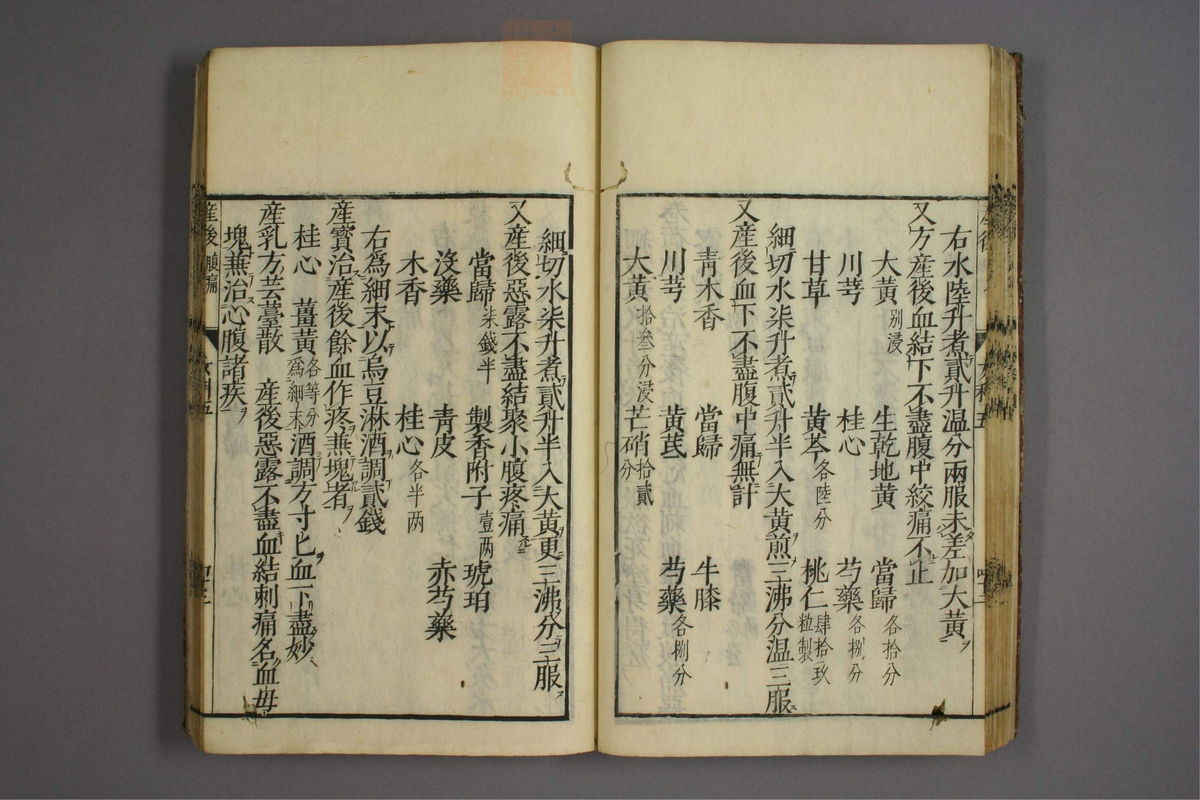 右水陸升煮貳升温分兩服未差加大黄
又方産後血結下不盡腹中絞痛不止
大黄別浸 生乾地黄 當歸各拾分
川芎 桂心 芍藥各捌分
甘草 黄芩各陸分 桃仁肆拾玖粒製
細切水柒升煮貳升半入大黄煎三沸分温三服
又産後血下不盡腹中痛無計
青木香 當歸 牛膝
川芎 黄芪 芍藥各捌分
大黄拾叄分浸 芒硝拾貳分
細切水柒升煮貳升半入大黄更三沸分三服
又産後惡露不盡結聚小腹疼痛
當歸柒錢半 製香附子壹两 琥珀
沒藥 青皮 赤芍藥
木香 桂心各半两
右為細末以烏豆淋酒調貳錢
産寶治産後餘血作疼兼塊者
桂心 薑黄各等分為細末酒調方寸匕血下盡妙
産乳方芸薹散 産後惡露不盡血結刺痛名血母
塊兼治心腹諸疾
産後 腹痛